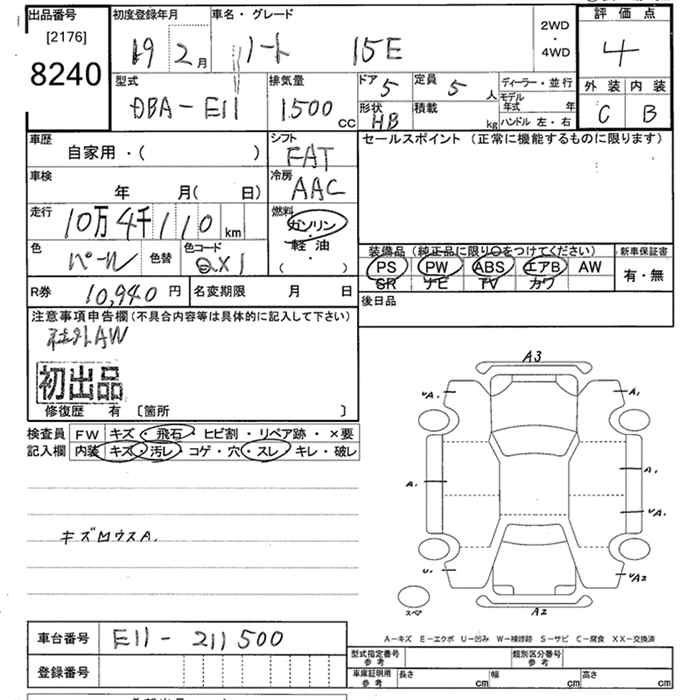 出品番号 [2176] 8240
初度登録年月 19 年 2月
車名・グレード ノート 15E
2WD・4WD
評価点 4
外装 C 内装 B
型式 DBA-E11
排気量 1500 CC
ドア 5 定員 5人
形状 HB 積載 kg
ディーラー・並行
モデル年式 年
ハンドル 左・右
車歴 自家用・( )
シフト FAT
セールスポイント (正常に機能するものに限ります)
車検 年 月( 日)
冷房 AAC
走行 10万4千110 km
燃料 ガソリン・軽油・( )
色 パール 色替 色コード QX1
装備品 (純正品に限り○をつけてください)
新車保証書
PS PW ABS エアB AW
SR ナビ TV カワ
有・無
R券 10,940 円 名変期限 月 日
後日品
注意事項申告欄 (不具合内容等は具体的に記入して下さい)
社外AW
初出品
修復歴 有 [箇所 ]
検査員 FW キズ・飛石・ヒビ割・リペア跡・×要
記入欄 内装 キズ・汚レ・コゲ・穴・スレ・キレ・破レ
キズ凹ウスA.
A3
UA. A.
A. A.
UA.
U. UA2
スペア A2
A-キズ E-エクボ U-凹み W-補修跡 S-サビ C-腐食 XX-交換済
車台番号 E11-211500
登録番号
型式指定番号 参考 類別区分番号 参考
車庫証明用 参考 長さ cm 幅 cm 高さ cm